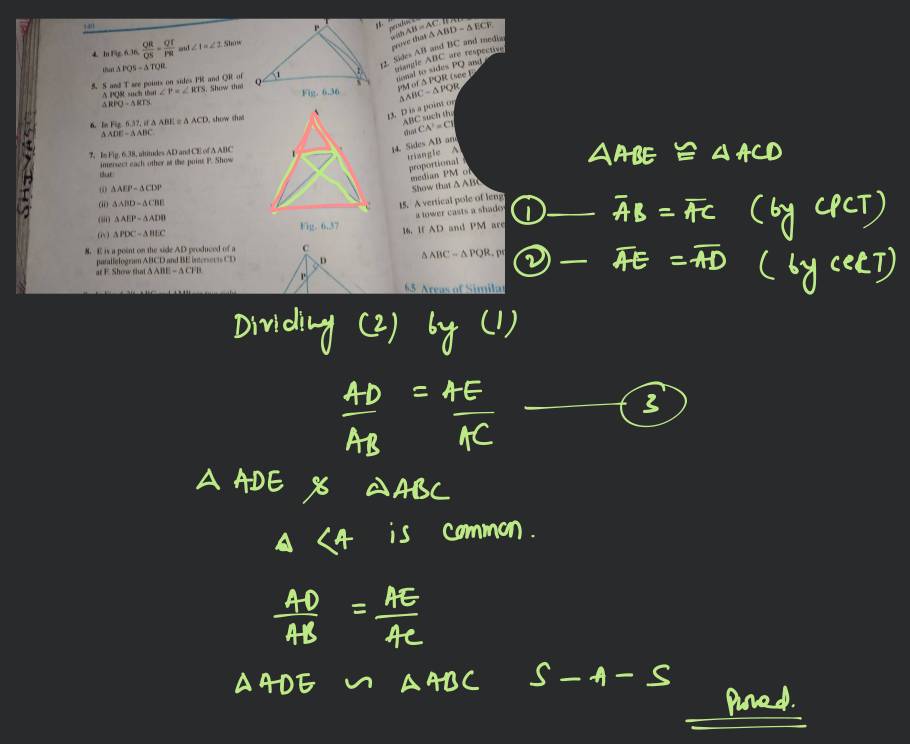 140
4. In Fig. 6.36, QR/QS = QT/PR and ∠1 = ∠2. Show
that Δ PQS ~ Δ TQR.
5. S and T are points on sides PR and QR of
Δ PQR such that ∠ P = ∠ RTS. Show that
Δ RPQ ~ Δ RTS.
6. In Fig. 6.37, if Δ ABE ≅ Δ ACD, show that
Δ ADE ~ Δ ABC.
7. In Fig. 6.38, altitudes AD and CE of Δ ABC
intersect each other at the point P. Show
that:
(i) Δ AEP ~ Δ CDP
(ii) Δ ABD ~ Δ CBE
(iii) Δ AEP ~ Δ ADB
(iv) Δ PDC ~ Δ BEC
8. E is a point on the side AD produced of a
parallelogram ABCD and BE intersects CD
at F. Show that Δ ABE ~ Δ CFB.
P T
Q 1 S
Fig. 6.36
A
Fig. 6.37
C
D
P
11.
with AB = AC.
prove that Δ ABD ~ Δ ECF.
12. Sides AB and BC and media
triangle ABC are respective
tional to sides PQ and
PM of Δ PQR (see
Δ ABC ~ Δ PQR.
13. D is a point on
ABC such tha
that CA² =
14. Sides AB an
triangle A
proportional
median PM o
Show that Δ AB
15. A vertical pole of leng
a tower casts a shado
16. If AD and PM are
Δ ABC ~ Δ PQR, p
6.5 Areas of Simila
Δ ABE ≅ Δ ACD
① — AB = AC (by CPCT)
② — AE = AD (by CPCT)
Dividing (2) by (1)
AD/AB = AE/AC — 3
Δ ADE & Δ ABC
Δ <A is common.
AD/AB = AE/AC
Δ ADE ~ Δ ABC S-A-S
Proved.